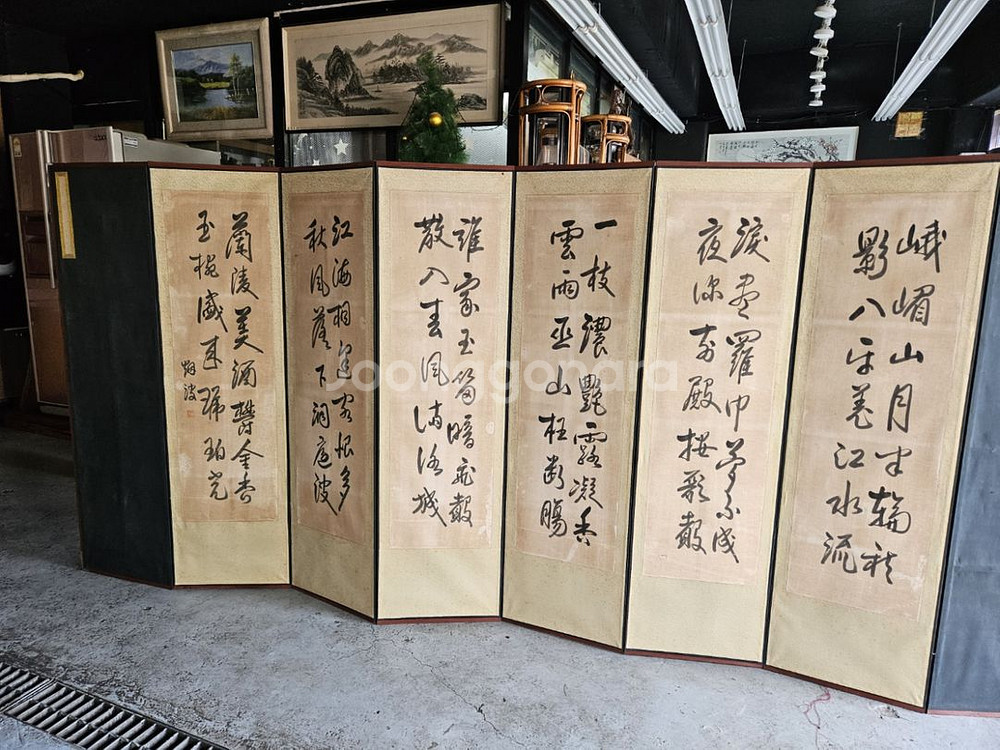 峨嵋山月半輪秋
影入平羌江水流
淚盡羅巾夢不成
夜深前殿按歌聲
一枝濃艷露凝香
雲雨巫山枉斷腸
誰家玉笛暗飛聲
散入春風滿洛城
江海相逢客恨多
秋風葉下洞庭波
蘭陵美酒鬱金香
玉椀盛來琥珀光
Joonggonara